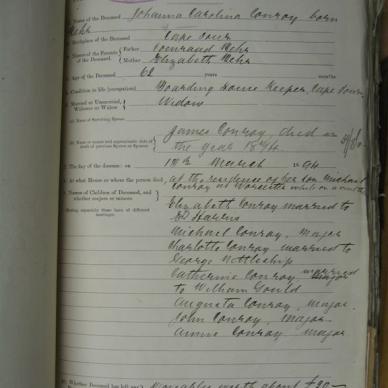 Name of the Deceased Johanna Carolina Conroy born
Nehr
Birthplace of the Deceased Cape Town
Names of the Parents of the Deceased Father Connraad Nehr
Mother Elizabeth Nehr
Age of the Deceased 62 years months
Condition in life (occupation) Boarding House Keeper, Cape Town
Married or Unmarried, Widower or Widow Widow
Name of Surviving Spouse
James Conroy, died in
the year 1874.
The day of the decease: on 17th March 94
At what House or where the person died, at the residence of her son Michael
Conroy at Worcester while on a
Names of Children of Deceased, and whether majors or minors
Elizabeth Conroy married to
Michael Conroy, Major
Charlotte Conroy married to
George Nettleship
Catherine Conroy married
to William Gould
Augusta Conroy, major.
John Conroy, Major.
Annie Conroy major
Whether Deceased has left any Moveables worth about £20